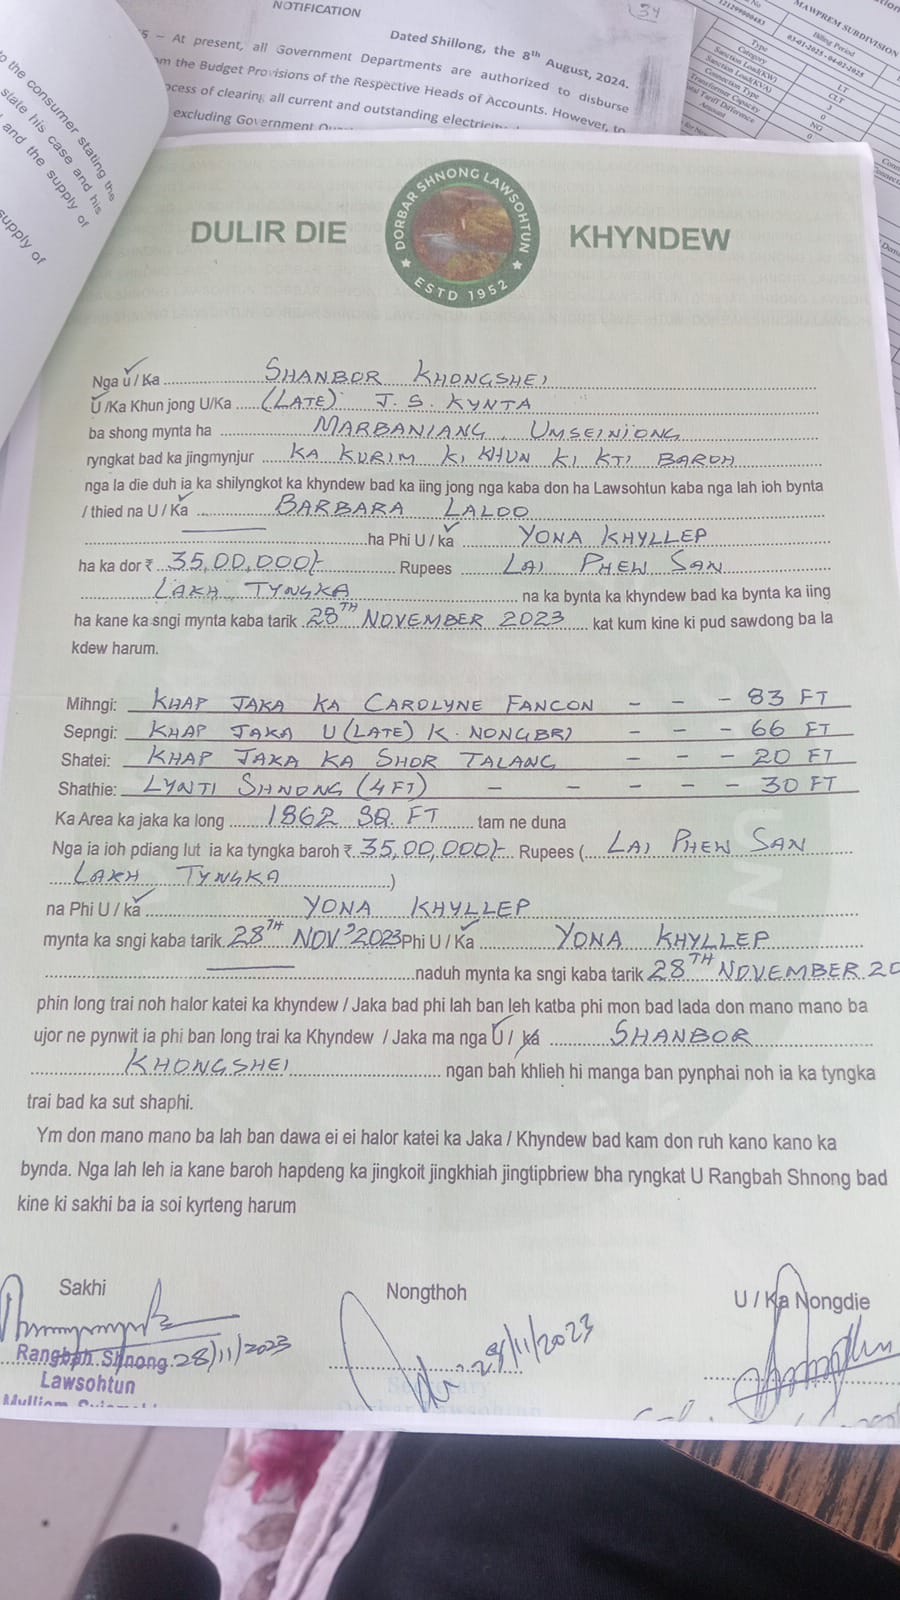 NOTIFICATION
34
Dated Shillong, the 8th August, 2024.
5 – At present, all Government Departments are authorized to disburse
om the Budget Provisions of the Respective Heads of Accounts. However, to
ocess of clearing all current and outstanding electricity
excluding Government
MAWPREM SUBDIVISION
Billing Period
03-01-2025 - 04-02-2025
121299000483
Type
Category
Sanction Load(KW)
Sanction Load(KVA)
Connection Type
Transformer Capacity
Total Tariff Difference
Amount
LT
CLT
NG
0
to the consumer stating the
state his case and his
and the supply of
supply of
DULIR DIE KHYNDEW
DORBAR SHNONG LAWSOHTUN
ESTD 1952
Nga u / Ka SHANBOR KHONGSHEI
U /Ka Khun jong U/Ka (LATE) J. S. KYNTA
ba shong mynta ha MARBANIANG, UMSEINIONG
ryngkat bad ka jingmynjur KA KURIM KI KHUN KI KTI BAROH
nga la die duh ia ka shilyngkot ka khyndew bad ka iing jong nga kaba don ha Lawsohtun kaba nga lah ioh bynta
/ thied na U / Ka BARBARA LALOO
ha Phi U / ka YONA KHYLLEP
ha ka dor ₹ 35,00,000/- Rupees LAI PHEW SAN
LAKH TYNGKA na ka bynta ka khyndew bad ka bynta ka iing
ha kane ka sngi mynta kaba tarik 28TH NOVEMBER 2023 kat kum kine ki pud sawdong ba la
kdew harum.
Mihngi: KHAP JAKA KA CAROLYNE FANCON - - - 83 FT
Sepngi: KHAP JAKA U (LATE) K. NONGBRI - - - 66 FT
Shatei: KHAP JAKA KA SHOR TALANG - - - 20 FT
Shathie: LYNTI SHNONG (4FT) - - - - - 30 FT
Ka Area ka jaka ka long 1862 SQ. FT tam ne duna
Nga ia ioh pdiang lut ia ka tyngka baroh ₹ 35,00,000/- Rupees ( LAI PHEW SAN
LAKH TYNGKA )
na Phi U / ka YONA KHYLLEP
mynta ka sngi kaba tarik 28TH NOV'2023 Phi U / Ka YONA KHYLLEP
naduh mynta ka sngi kaba tarik 28TH NOVEMBER 20
phin long trai noh halor katei ka khyndew / Jaka bad phi lah ban leh katba phi mon bad lada don mano mano ba
ujor ne pynwit ia phi ban long trai ka Khyndew / Jaka ma nga U / ka SHANBOR
KHONGSHEI ngan bah khlieh hi manga ban pynphai noh ia ka tyngka
trai bad ka sut shaphi.
Ym don mano mano ba lah ban dawa ei ei halor katei ka Jaka / Khyndew bad kam don ruh kano kano ka
bynda. Nga lah leh ia kane baroh hapdeng ka jingkoit jingkhiah jingtipbriew bha ryngkat U Rangbah Shnong bad
kine ki sakhi ba ia soi kyrteng harum
Sakhi Nongthoh U / Ka Nongdie
28/11/2023 28/11/2023
Rangbah Shnong
Lawsohtun
Secretary
Dorbar Lawsohtun